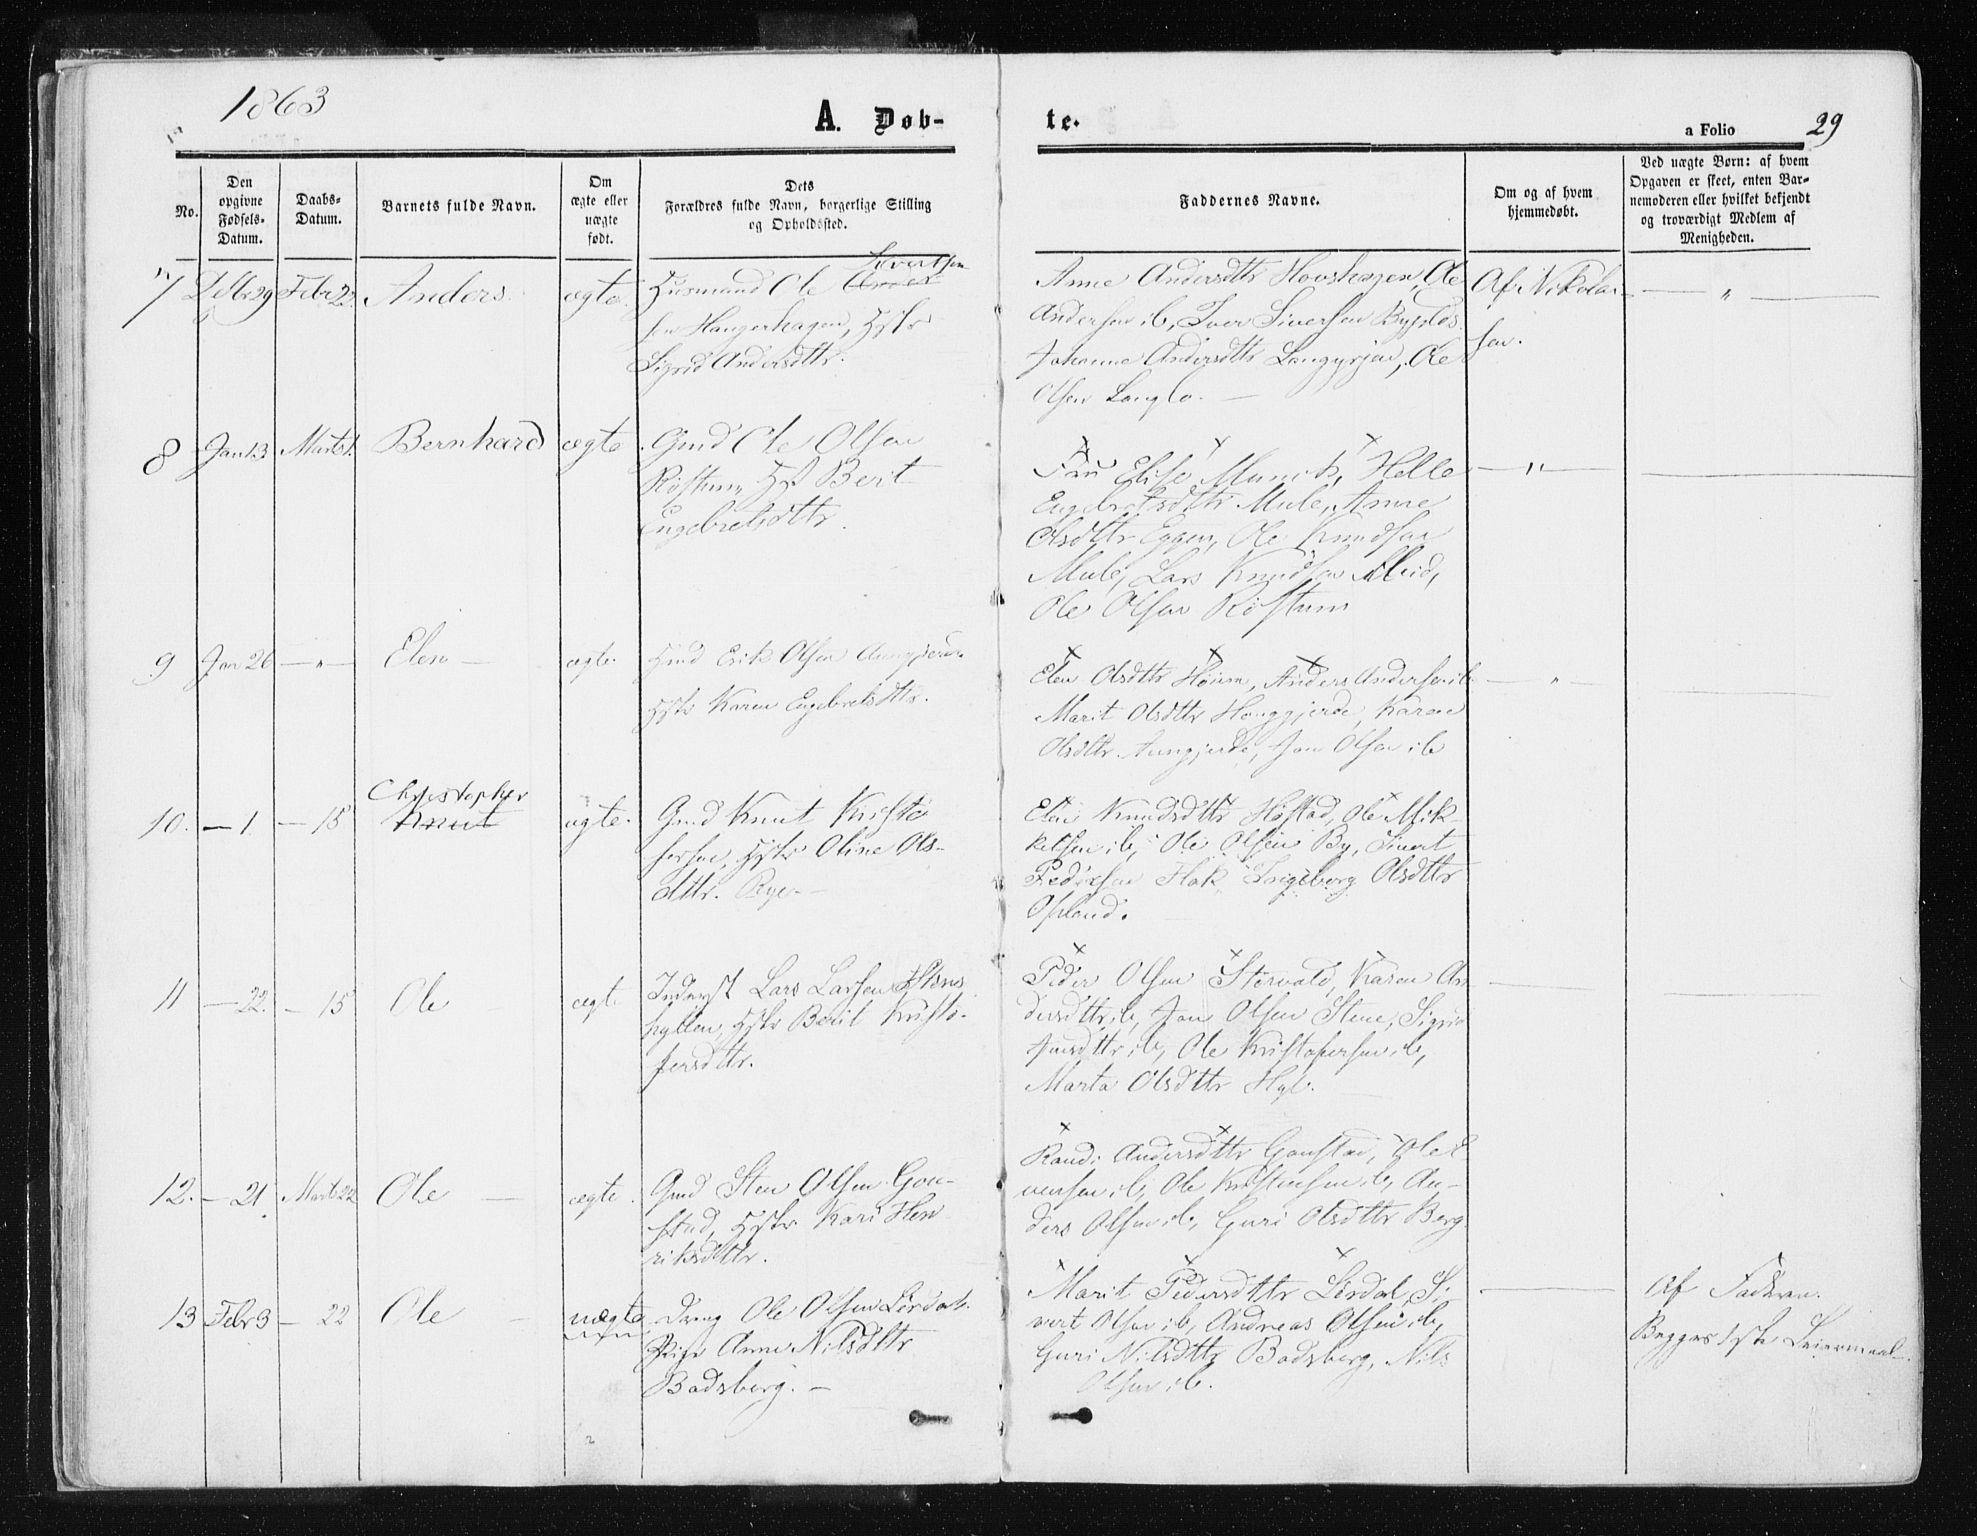 1863
A. Døb-
te.
a Folio 29
No.
Den
opgivne
Fødsels-
Datum.
Daabs-
Datum.
Barnets fulde Navn.
Om
ægte eller
uægte
født.
Dets
Forældres fulde Navn, borgerlige Stilling
og Opholdssted.
Faddernes Navne.
Om og af hvem
hjemmedøbt.
Ved uægte Børn: af hvem
Opgaven er skeet, enten Bar-
nemoderen eller hvilket bekjendt
og troværdigt Medlem af
Menigheden.
7 Febr 22 Anders ægte. Husmand Ole Sivertsen
Haugerhagen, Hstr
Sigrid Andersdttr.
Anne Andersdttr Ole
Andersen ib, Iver Siversen
Johanne Andersdttr Ole
Olsen Langlo.
Af Nikolai-
sen.
8 Jan 13 Marts 1. Bernhard ægte Gmd Ole Olsen
Røstum, Hst Berit
Engebretsdttr.
Fru Elise Munch, Helle
Engebretsdttr Mule, Anne
Olsdttr Eggen, Ole Knudsen
Mule, Lars Knudsen
Ole Olsen Røstum
9 Jan 26 — " — Elen ægte. Hmd Erik Olsen
Hstr Karen Engebretsdttr.
Elen Olsdttr Høiem, Anders Andersen ib
Marit Olsdttr Karen
Olsdttr Aungjerde, Jon Olsen ib
10. — 1. — 15 Christopher
Knut
ægte. Gmd Knut Kristo
fersen, Hstr Oline Ols-
dttr. Rye.
Elen Knudsdttr Høstad, Ole Mik-
kelsen ib, Ole Olsen By, Sivert
Flak, Ingeborg Olsdttr
Opland.
11 — 22. — 15 Ole ægte Inderst Lars Larsen
Hstr Berit Kristo-
fersdttr.
Peder Olsen Karen An
dersdttr ib, Jon Olsen Stene, Sigrid
Jonsdttr ib, Ole Kristofersen ib,
Marta Olsdttr
12. — 21 Marts 22 Ole ægte. Gmd Sten Olsen Gon-
stad, Hstr. Kari Hen
riksdttr.
Randi Andersdttr Gonstad, Ole
ib, Ole Kristensen ib, An-
ders Olsen ib, Guri Olsdttr Berg
13 Febr 3 — 22 Ole uægte Ole Olsen Lerdal.
Pige Anne Nilsdttr
Badsberg. —
Marit Pedersdttr Lerdal, Si-
vert Olsen ib, Andreas Olsen ib,
Guri Nilsdttr Badsberg, Nils
Olsen ib.
Af Faderen.
Begges 1ste Leiermaal.